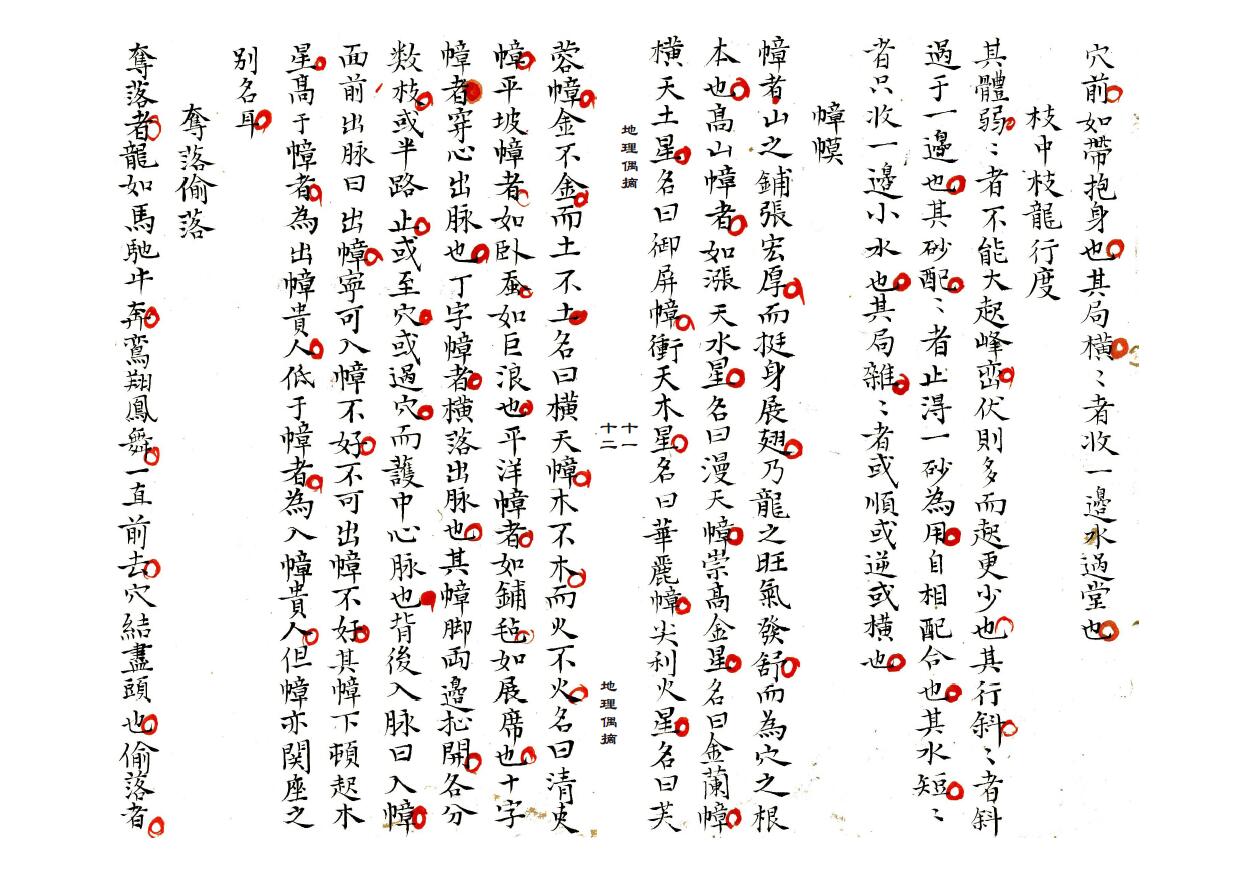 穴前如帶抱身也其局橫〻者收一邊水過堂也
枝中枝龍行度
其體弱〻者不能大起峰巒伏則多而起更少也其行斜〻者斜
過于一邊也其砂配〻者止得一砂為用自相配合也其水短〻
者只收一邊小水也其局雜〻者或順或逆或橫也
幛幙
幛者山之鋪張宏厚而挺身展翅乃龍之旺氣發舒而為穴之根
本也高山幛者如漲天水星名曰漫天幛崇高金星名曰金蘭幛
橫天土星名曰御屏幛衝天木星名曰華麗幛尖利火星名曰芙
地理偶摘
十一
十二
地理偶摘
蓉幛金不金而土不土名曰橫天幛木不木而火不火名曰清吏
幛平坡幛者如臥蚕如巨浪也平洋幛者如鋪毡如展席也十字
幛者穿心出脉也丁字幛者橫落出脉也其幛脚両邊抛開各分
数枝或半路止或至穴或過穴而護中心脉也背後入脉曰入幛
面前出脉曰出幛寧可入幛不好不可出幛不好其幛下頓起木
星高于幛者為出幛貴人低于幛者為入幛貴人但幛亦関座之
别名耳
奪落偷落
奪落者龍如馬馳牛奔鸞翔鳳舞一直前去穴結盡頭也偷落者